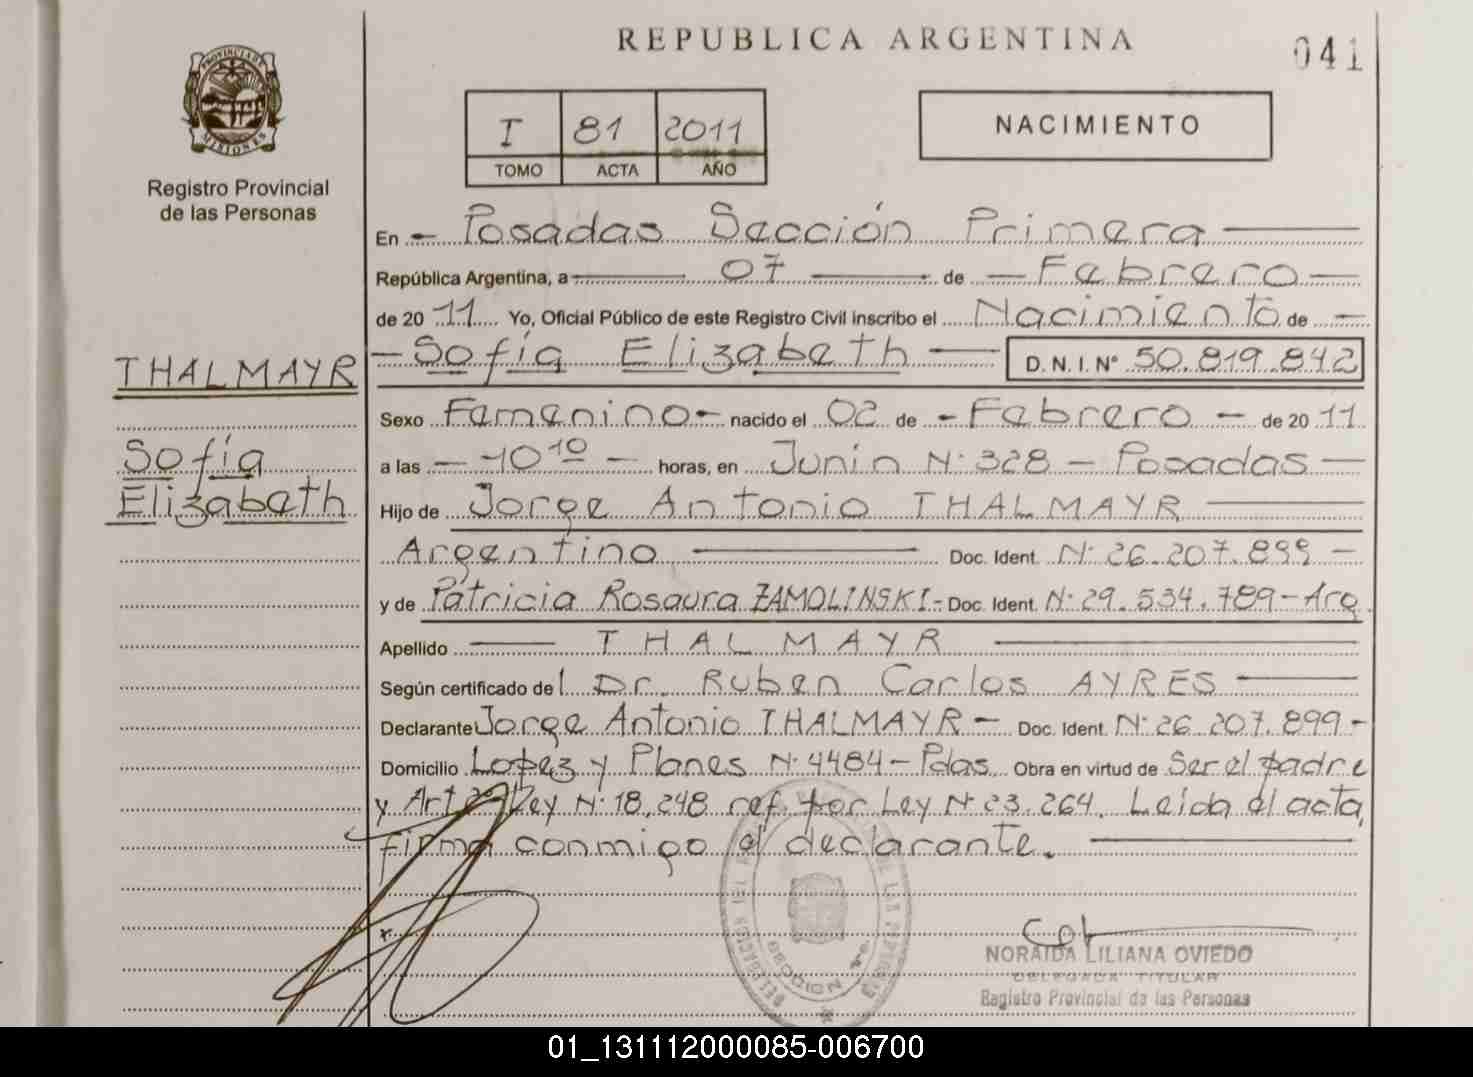 REPUBLICA ARGENTINA
041
PROVINCIA DE
MISIONES
Registro Provincial
de las Personas
I 81 2011
TOMO ACTA AÑO
NACIMIENTO
En - Posadas Sección Primera
República Argentina, a 07 de - Febrero -
de 20 11 Yo, Oficial Público de este Registro Civil inscribo el Nacimiento de -
THALMAYR
- Sofía Elizabeth D. N. I. N° 50.819.842
Sexo Femenino - nacido el 02 de - Febrero - de 20 11
Sofía
a las - 10 10 - horas, en Junin N° 328 - Posadas -
Elizabeth
Hijo de Jorge Antonio THALMAYR
Argentino Doc. Ident. N° 26.207.899 -
y de Patricia Rosaura ZAMOLINSKI - Doc. Ident. N° 29.534.789 - Arg.
Apellido THALMAYR
Según certificado del Dr. Ruben Carlos AYRES
Declarante Jorge Antonio THALMAYR - Doc. Ident. N° 26.207.899 -
Domicilio Lopez y Planes N° 4484 - Pdas. Obra en virtud de Ser el padre
y Art Ley N° 18.248 ref. por Ley N° 23.264. Leida el acta,
firma conmigo el declarante.
NORAIDA LILIANA OVIEDO
DELEGADA TITULAR
Registro Provincial de las Personas
01_131112000085-006700